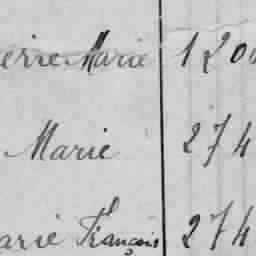 ierre Marie 120
Marie 274
arie François 274